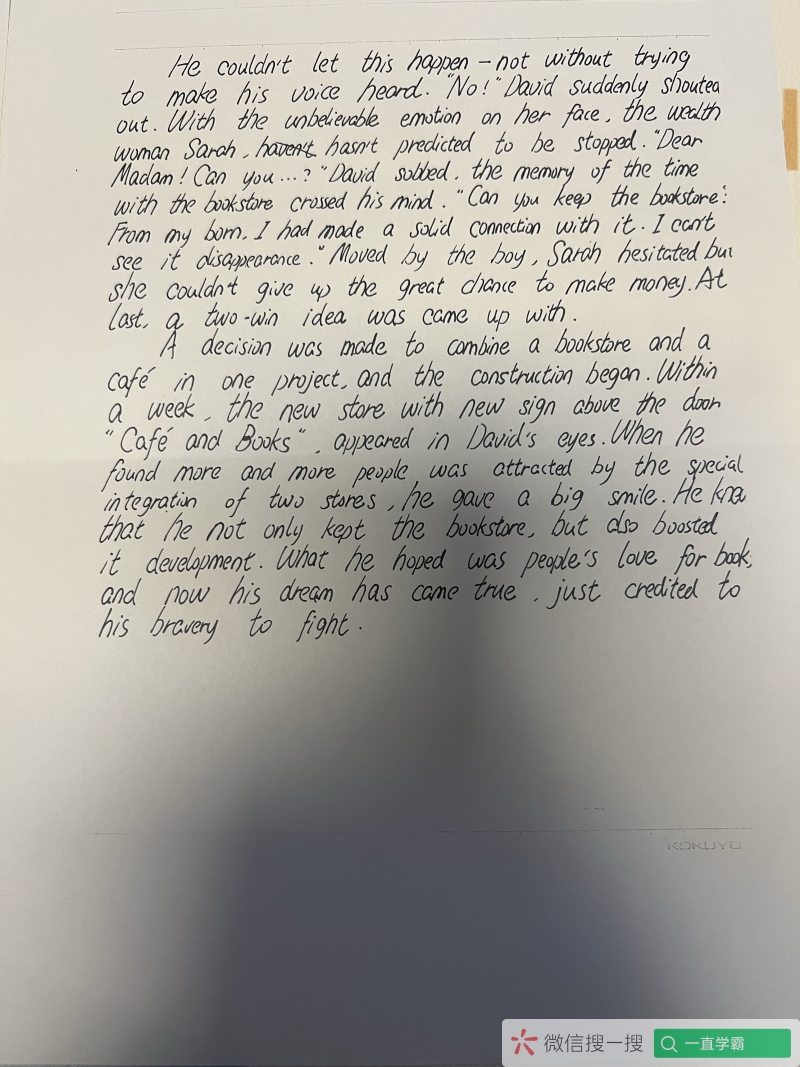 He couldn't let this happen – not without trying
to make his voice heard. "No!" David suddenly shouted
out. With the unbelievable emotion on her face, the wealth
woman Sarah, haven't hasn't predicted to be stopped. "Dear
Madam! Can you...? "David sobbed, the memory of the time
with the bookstore crossed his mind. "Can you keep the bookstore?
From my born, I had made a solid connection with it. I can't
see it disappearance." Moved by the boy, Sarah hesitated but
she couldn't give up the great chance to make money. At
last, a two-win idea was came up with.
A decision was made to combine a bookstore and a
café in one project, and the construction began. Within
a week, the new store with new sign above the door
"Café and Books", appeared in David's eyes. When he
found more and more people was attracted by the special
integration of two stores, he gave a big smile. He
that he not only kept the bookstore, but also boosted
it development. What he hoped was people's love for book,
and now his dream has came true, just credited to
his bravery to fight.
KOKUYO
微信搜一搜
一直学霸